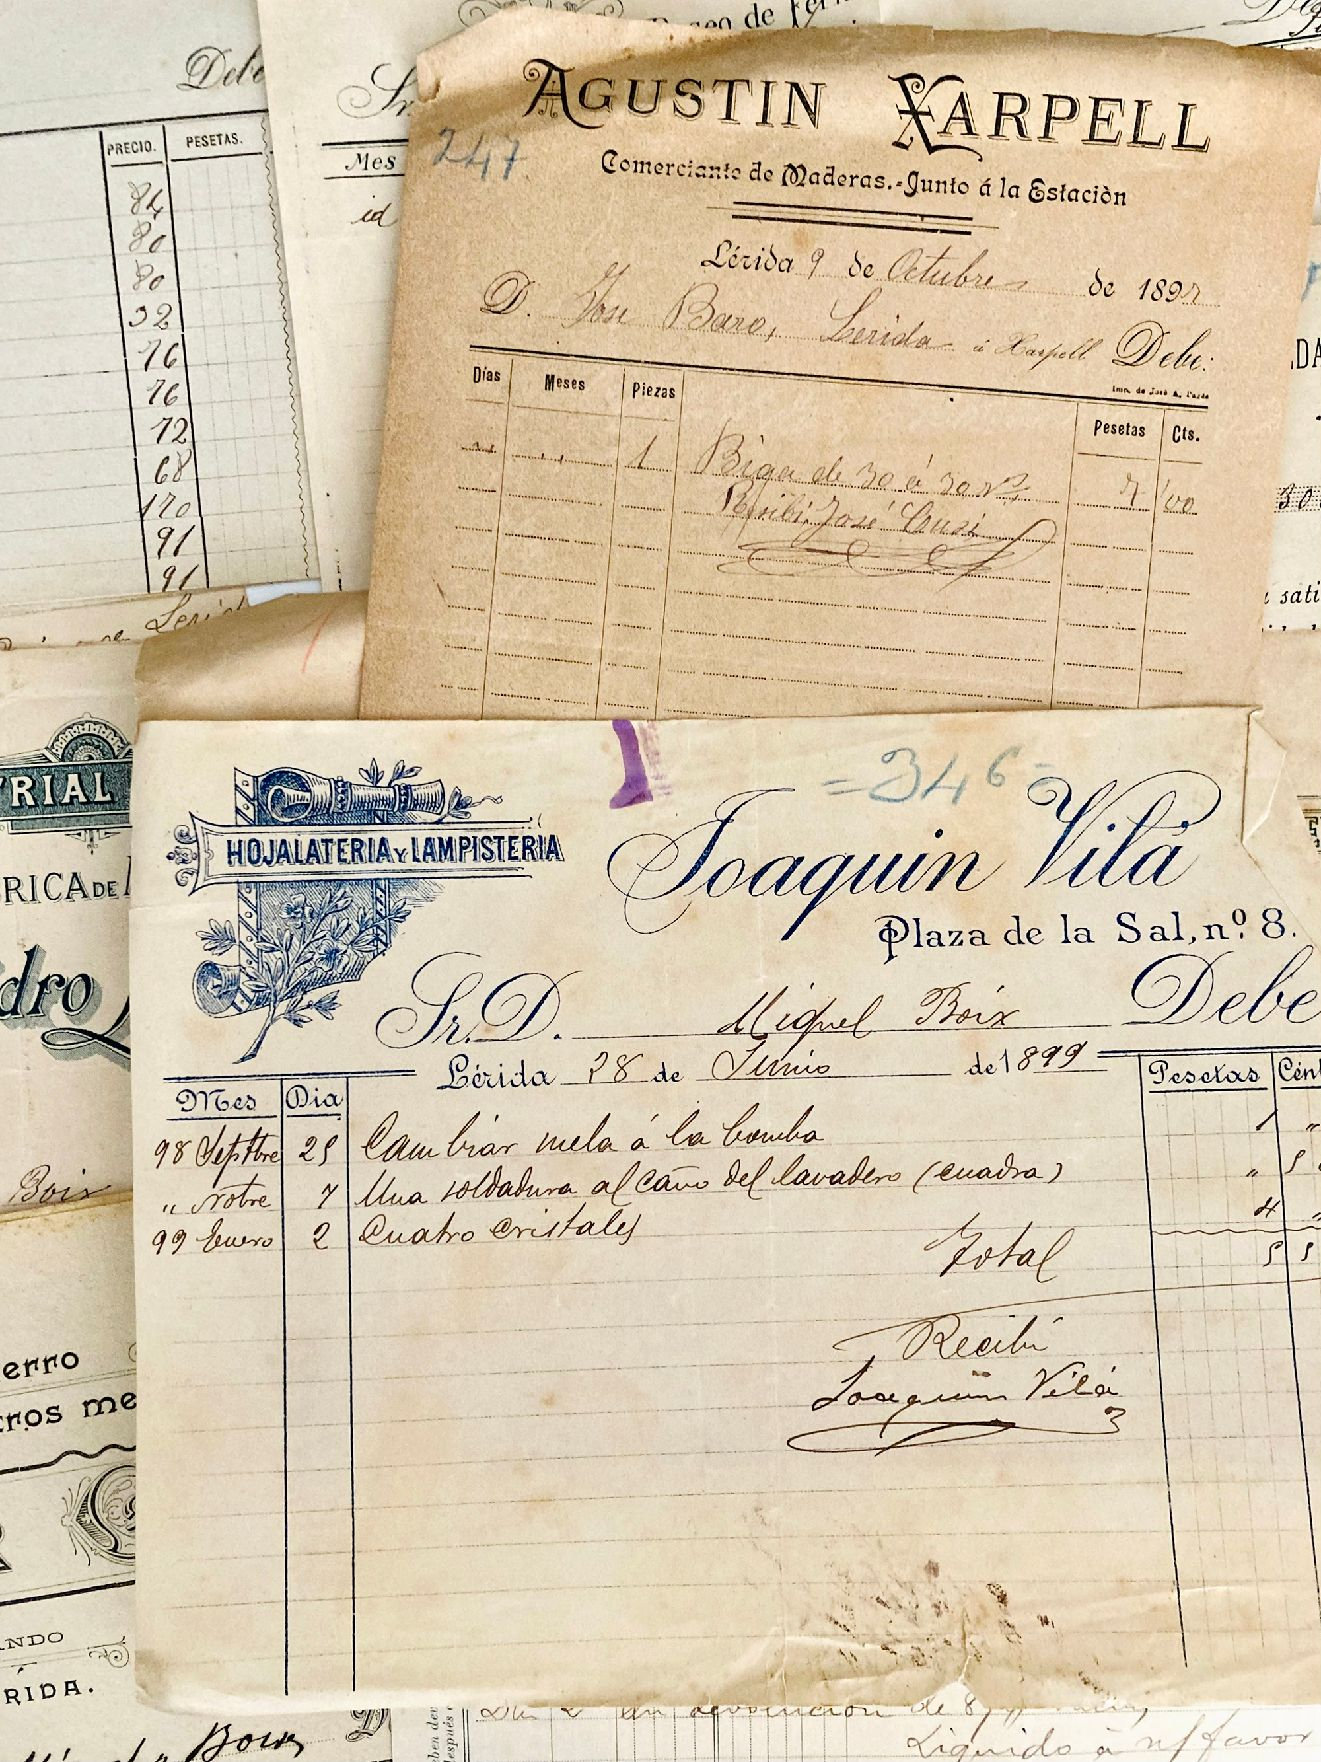 Debe
PRECIO. PESETAS.
84
80
80
32
76
76
72
68
170
91
91
Sr.
Mes
id
247.
AGUSTIN XARPELL
Comerciante de Maderas.-Junto á la Estaciòn
Lérida 9 de Octubre de 189
D. Jose Baro, Lerida a Xarpell Debe:
Imp. de José A. Pagés
Días Meses Piezas Pesetas Cts.
1 Biga de 30 á 30 7 00
Recibi, José Cusi
TRIAL
BRICA DE
dro
Boix
erro
tros me
ANDO
RIDA.
Boix
=346=
HOJALATERIA Y LAMPISTERIA
Joaquin Vilá
Plaza de la Sal, nº. 8.
Sr. D. Miquel Boix Debe
Lérida 28 de Junio de 1899
Mes Dia Pesetas Cént
98 Septbre 25 Cambiar mela á la bomba 1 "
" Nvbre 7 Una soldadura al caño del lavadero (cuadra) " 5
99 Enero 2 Cuatro cristales 4 "
Total 5 5
Recibí
Joaquin Vilá
de
Liquido á n/ favor